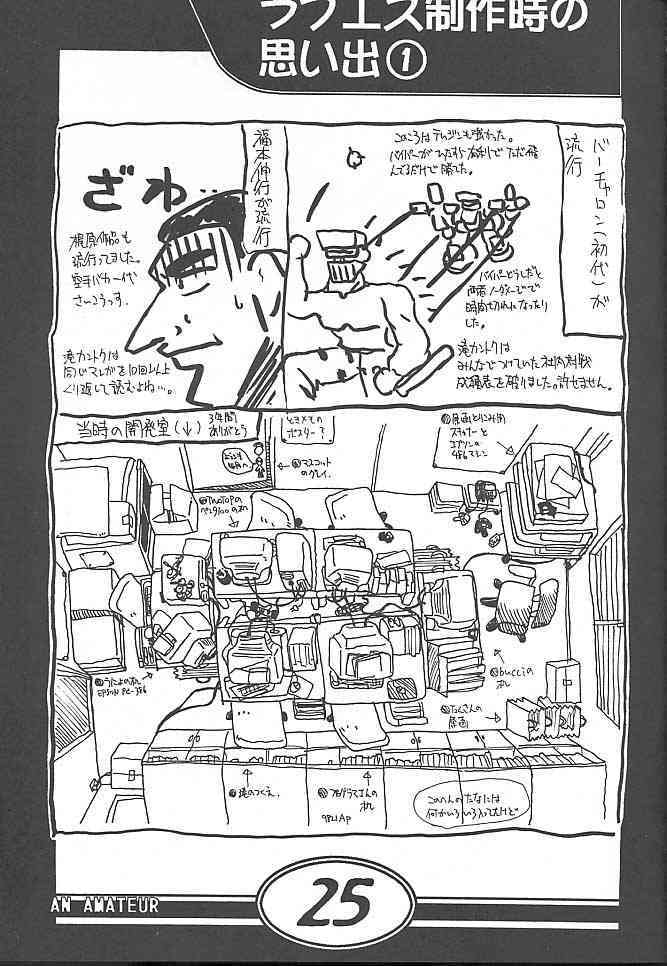 ラブエス制作時の
思い出①
バーチャロン(初代)が
流行
このころはテムジンも強かった。
バイパーがひたすら
んでるだけで勝てた。
バイパーどうしだと
両者ノーダメージで
時間切れになったり
しました。
滝カントクは
みんなでつけていた社内対戦
成績表を破りました。許せません。
福本伸行が流行
ざわ…
梶原作品も
流行ってました。
空手バカ一代
さいこうっす。
滝カントクは
同じマンガを10回以上
くり返して読むよね…。
当時の開発室(↓)
3年間
ありがとう
ときメモの
ポスター?
マスコット
のグレイ。
原画とりこみ用
スキャナーと
エプソンの
486マシン
の机
うたよの机
EPSON PC-386
bucciの
机
たくさんの
原画
滝のつくえ。
プログラマさんの
机
9821Ap
このへんのたなには
何かいろいろ入ってたけど
AN AMATEUR
25